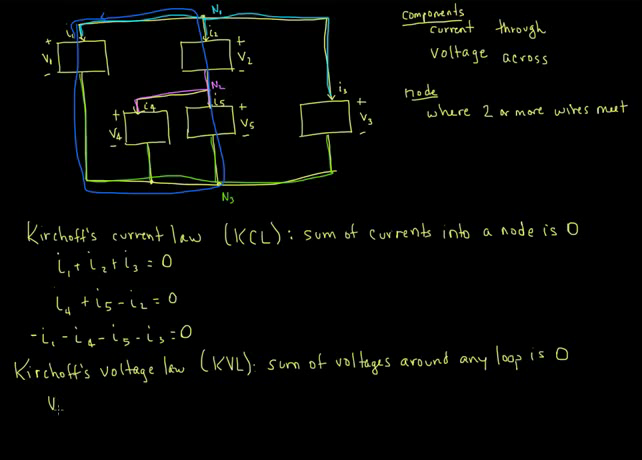 N₁
i₁
i₂
+
V₁
-
+
V₂
-
N₂
i₃
i₄
i₅
+
V₄
-
+
V₅
-
+
V₃
-
N₃
Components
current through
voltage across
node
where 2 or more wires meet
Kirchoff's current law (KCL): sum of currents into a node is 0
i₁ + i₂ + i₃ = 0
i₄ + i₅ - i₂ = 0
-i₁ - i₄ - i₅ - i₃ = 0
Kirchoff's voltage law (KVL): sum of voltages around any loop is 0
V